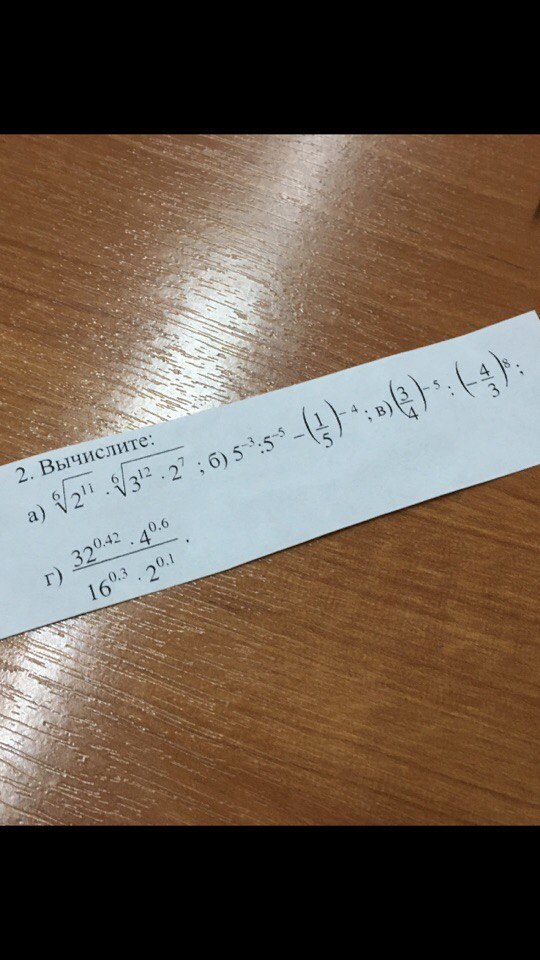 2. Вычислите:
а) ⁶√(2¹¹) · ⁶√(3¹² · 2⁷) ; б) 5⁻³:5⁻⁵ – (1/5)⁻⁴ ; в) (3/4)⁻⁵ : (–4/3)⁸ ;
г) (32^0.42 · 4^0.6)/(16^0.3 · 2^0.1) .